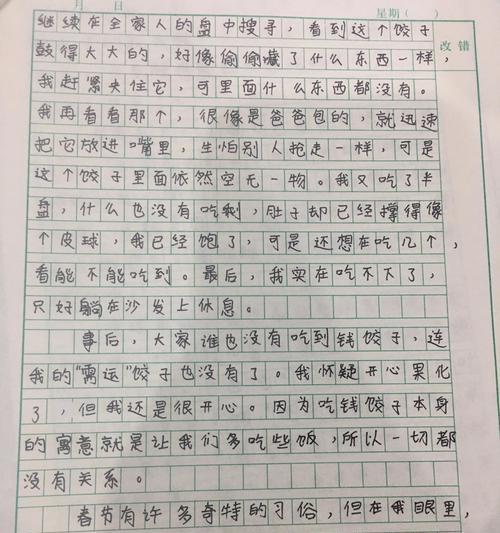 月 日 星期（ ）
改错
继续在全家人的盘中搜寻，看到这个饺子
鼓得大大的，好像偷偷藏了什么东西一样，
我赶紧夹住它，可里面什么东西都没有。
我再看看那个，很像是爸爸包的，就迅速
把它放进嘴里，生怕别人抢走一样，可是
这个饺子里面依然空无一物。我又吃了半
盘，什么也没有吃到，肚子却已经撑得像
个皮球，我已经饱了，可是还想在吃几个，
看能不能吃到。最后，我实在吃不下了，
只好躺在沙发上休息。
事后，大家谁也没有吃到钱饺子，连
我的“寓运”饺子也没有了。我怀疑开心果化
了，但我还是很开心。因为吃钱饺子本身
的寓意就是让我们多吃些饭，所以一切都
没有关系。
春节有许多奇特的习俗，但在我眼里，